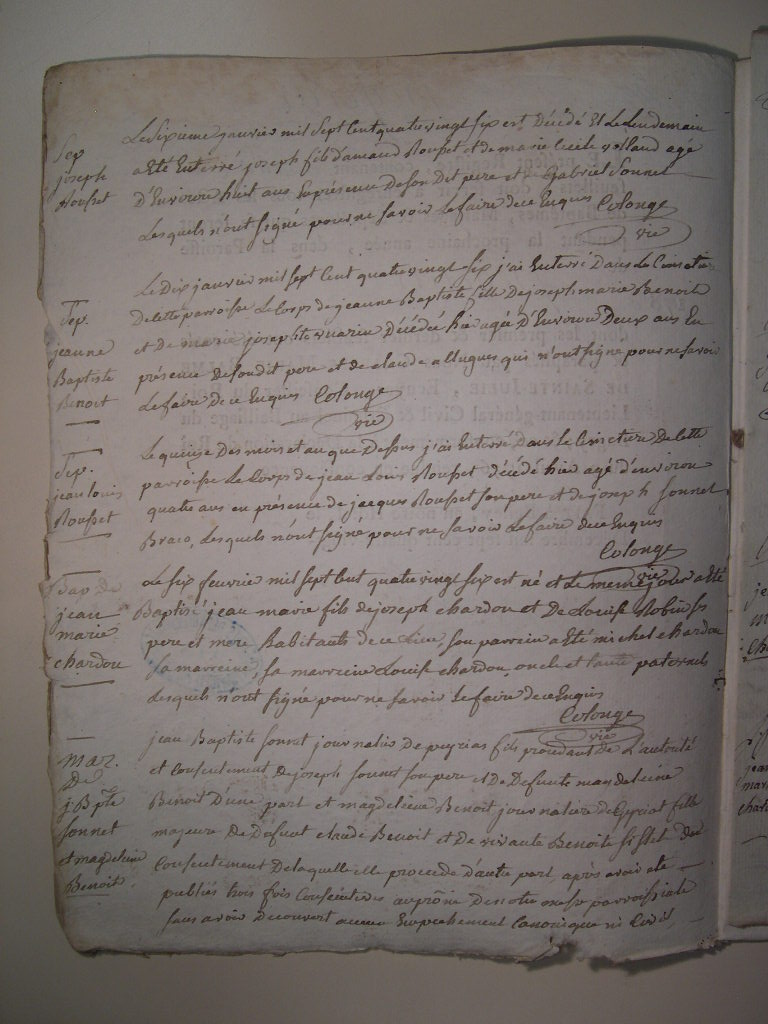 Sep
joseph
Rousset
Le sixieme janvier mil sept cent quatre vingt six est décédé et le lendemain
a eté enterré joseph fils d'amand Rousset et de marie Cecile volland agé
D'environ huit ans en presence de son dit pere et Gabriel Sonnet
Lesquels n'ont signé pour ne savoir Le faire de ce Enquis Colonge
vic
Sep.
jeanne
Baptiste
Benoit
Le Dix janvier mil sept cent quatre vingt six j'ai enterré Dans Le Cimetiere
De cette parroisse Le Corps de jeanne Baptiste fille De joseph marie Benoit
et De marie josephte décédée hier agée D'environ Deux ans En
présence de son dit pere et de claude allugues qui n'ont signé pour ne savoir
Le faire de ce Enquis Colonge
vic
Sep.
jean Louis
Rousset
Le quinze Des mois et an que Dessus j'ai enterré Dans le Cimetiere De cette
parroisse Le Corps de jean Louis Rousset décédé hier agé d'environ
quatre ans en présence de jacques Rousset son pere et de joseph Sonnet
Lesquels n'ont signé pour ne savoir Le faire de ce Enquis
Colonge
vic
Bap de
jean
marie
chardon
Le six fevrier mil sept cent quatre vingt six est né et Le meme jour a eté
Baptisé jean marie fils de joseph chardon et De Louise Robin ses
pere et mere habitants de ce Lieu, son parrein a eté michel chardon
sa marreine, sa marreine Louise chardon, oncle et tante paternels
Lesquels n'ont signé pour ne savoir Le faire de ce Enquis
Colonge
vic
mar.
De
j. Bpte
Sonnet
et magdeleine
Benoit.
jean Baptiste Sonnet journalier De peyrias fils procedant De L'autorité
et Consentement De joseph Sonnet son pere et De Defunte magdeleine
Benoit D'une part et magdeleine Benoit journaliere de Cyriat fille
majeure De Defunt claude Benoit et De vivante Benoite Du
Consentement De laquelle elle procede D'autre part, après avoir été
publiés trois fois Consécutives au prône De notre messe parroissiale
sans avoir Decouvert aucun Empechement Canonique ni Civil